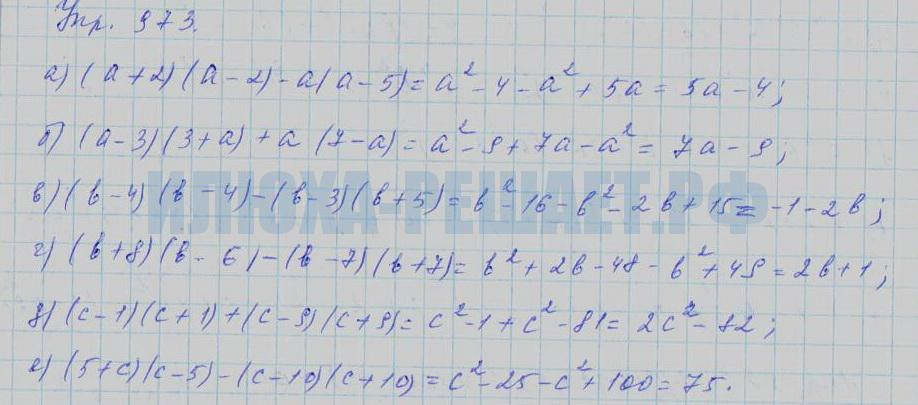 Упр. 973.
а) (a+2)(a-2)-a(a-5)=a²-4-a²+5a=5a-4;
б) (a-3)(3+a)+a(7-a)=a²-9+7a-a²=7a-9;
в) (b-4)(b-4)-(b-3)(b+5)=b²-16-b²-2b+15=-1-2b;
ИЛЮХА-РЕШАЕТ.РФ
г) (b+8)(b-6)-(b-7)(b+7)=b²+2b-48-b²+49=2b+1;
д) (c-1)(c+1)+(c-9)(c+9)=c²-1+c²-81=2c²-82;
е) (5+c)(c-5)-(c-10)(c+10)=c²-25-c²+100=75.